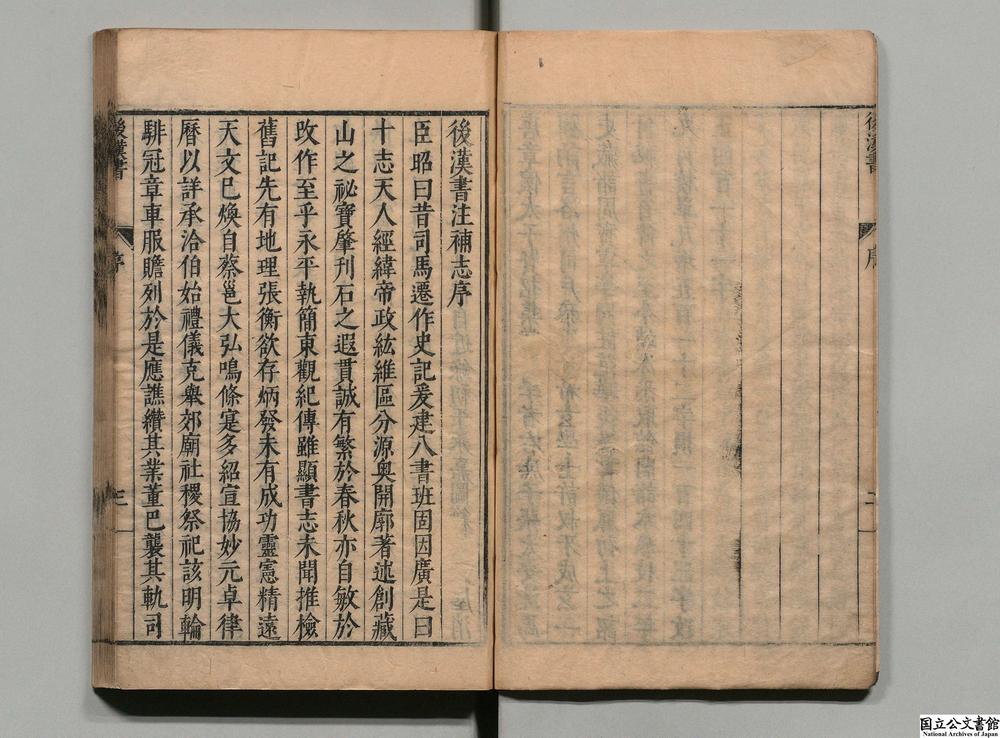 後漢書
序
後漢書注補志序
臣昭曰昔司馬遷作史記爰建八書班固因廣是曰
十志天人經緯帝政紘維區分源奧開廓著述創藏
山之祕寶肇刊石之遐貫誠有繁於春秋亦自敏於
攺作至乎永平執簡東觀紀傳雖顯書志未聞推檢
舊記先有地理張衡欲存炳發未有成功靈憲精遠
天文巳煥自蔡邕大弘鳴條寔多紹宣協妙元卓律
曆以詳承洽伯始禮儀克舉郊廟社稷祭祀該明輪
騑冠章車服贍列於是應譙纘其業董巴襲其軌司
後漢書
序
国立公文書館
National Archives of Japan